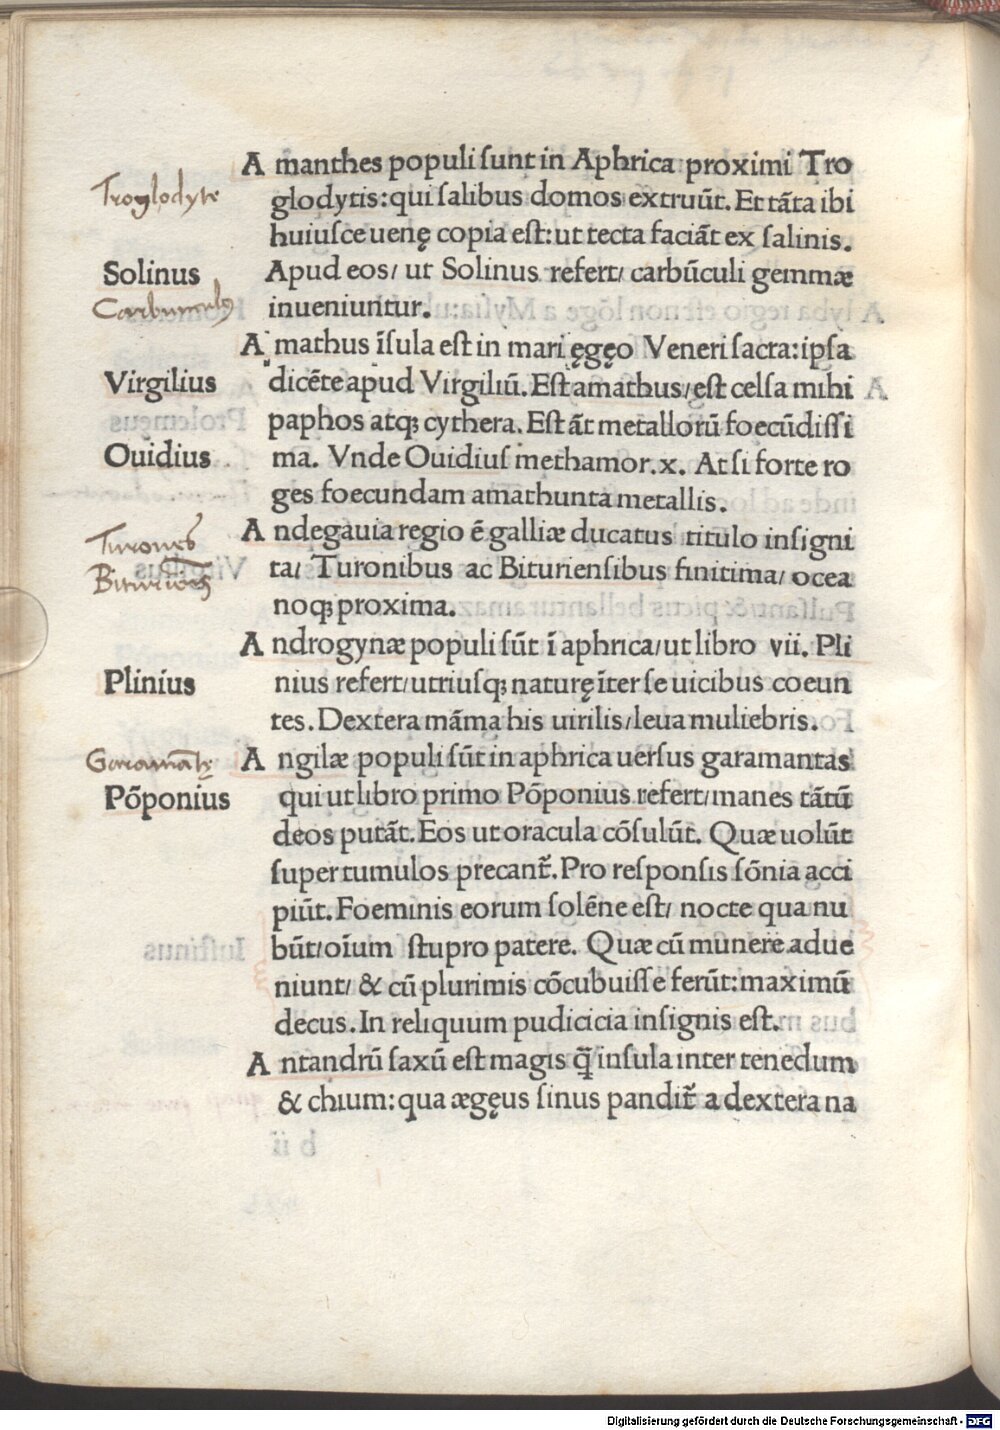 A manthes populi ſunt in Aphrica proximi Tro
Troglodyte
glodytis: qui ſalibus domos extruūt. Et tāta ibi
huiuſce uenę copia eſt: ut tecta faciāt ex ſalinis.
Solinus
Apud eos/ ut Solinus refert/ carbūculi gemmæ
Carbunculus
inueniuntur.
A mathus īſula eſt in mari ęgęo Veneri ſacra: ipſa
Virgilius
dicēte apud Virgiliū. Eſt amathus/ eſt celſa mihi
paphos atqꝫ cythera. Eſt āt metallorū foecūdiſſi
Ouidius
ma. Vnde Ouidiuſ methamor. x. At ſi forte ro
ges foecundam amathunta metallis.
A ndegauia regio ē galliæ ducatus titulo inſigni
Turones
ta/ Turonibus ac Biturienſibus finitima/ ocea
Bituriōes
noqꝫ proxima.
A ndrogynæ populi ſūt ī aphrica/ ut libro vii. Pli
Plinius
nius refert/ utriuſqꝫ naturę īter ſe uicibus coeun
tes. Dextera māma his uirilis/ leua muliebris.
A ngilæ populi ſūt in aphrica uerſus garamantas
Garamātę
Pōponius
qui ut libro primo Pōponius refert/ manes tātū
deos putāt. Eos ut oracula cōſulūt. Quæ uolūt
ſuper tumulos precant᷑. Pro reſponſis ſōnia acci
piūt. Foeminis eorum ſolēne eſt/ nocte qua nu
būt/ oīum ſtupro patere. Quæ cū munere adue
niunt/ & cū plurimis cōcubuiſſe ferūt: maximū
decus. In reliquum pudicicia inſignis eſt.
A ntandrū ſaxū eſt magis q̄ inſula inter tenedum
& chium: qua ægęus ſinus pandit᷑ a dextera na
Digitalisierung gefördert durch die Deutsche Forschungsgemeinschaft - DFG